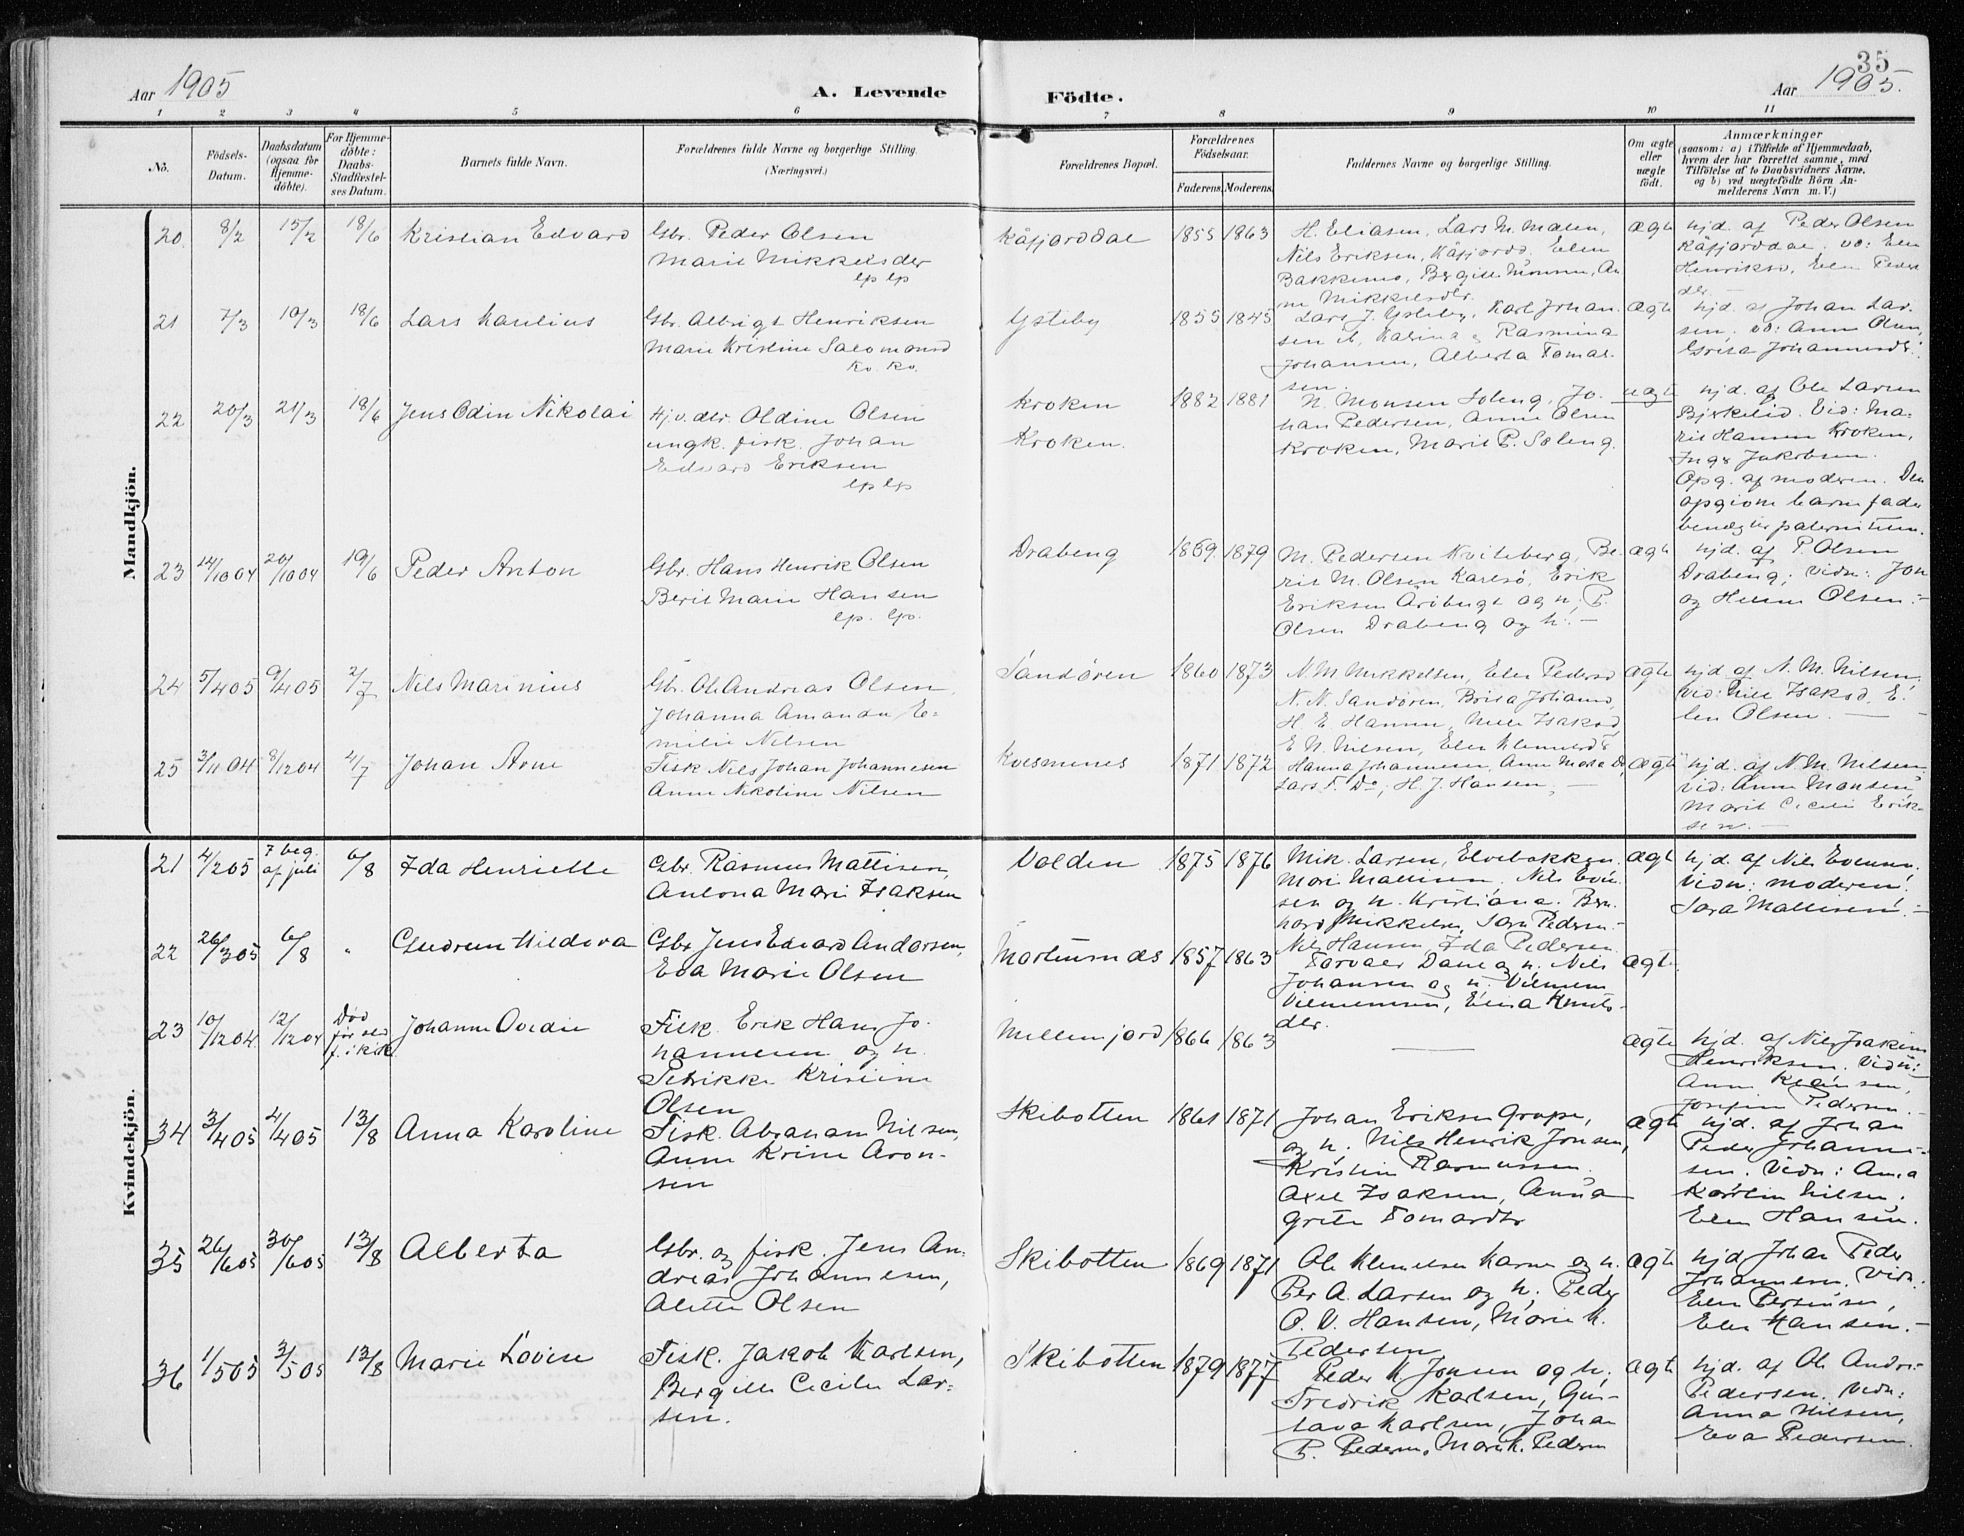 35
Aar 1905
A. Levende
Födte.
Aar 1905.
1 2 3 4 5 6 7 8 9 10 11
No.
Födsels-Datum.
Daabsdatum (ogsaa for Hjemme-döbte).
For Hjemme-döbte: Daabs-Stadfæstel-ses Datum.
Barnets fulde Navn.
Forældrenes fulde Navne og borgerlige Stilling. (Næringsvei.)
Forældrenes Bopæl.
Forældrenes Födselsaar.
Faderens. Moderens.
Faddernes Navne og borgerlige Stilling.
Om ægte eller uægte födt.
Anmærkninger
(saasom: a) i Tilfælde af Hjemmedaab,
hvem der har forrettet samme, med
Tilföielse af to Daabsvidners Navne,
og b) ved uægtefödte Börn An-
melderens Navn m. V.)
Mandkjön.
20 8/2 15/2 18/6 Kristian Edvard
Gbr. Peder Olsen
Marit Mikkelsder
lp lp
Kåfjorddal 1855 1863
H. Eliasen, Lars M. Malen,
Nils Eriksen, Kåfjordd, Elen
Bakkemo, Bergitte Monsen, An
ne Mikkelsdr.
ægte
hjd. af Peder Olsen
Kåfjorddal. vd: Elen
Henriksd, Elen Peders
der —
21 7/3 19/3 18/6 Lars Karelius
Gbr. Albrigt Henriksen
Marie Kristine Salomonsd
kv. kv.
Ysteby 1855 1845
Lars J. Ysteby, Karl Johan
sen &, Kalina & Rasmina
Johansen, Alberta Tomas
sen.
ægte
hjd. af Johan Lar
sen. vd: Anne Olsen,
22 20/3 21/3 18/6 Jens Odin Nikolai
Hjv. der. Oldine Olsen
ungk. fisk. Johan
Edvard Eriksen
lp lp
Kroken
Kroken.
1882 1881
N. Monsen Soleng, Jo-
han Pedersen, Anne Olsen
Kroken, Marit P. Soleng.
uægte
hjd. af Ole Larsen
Birkelid. Vid: Ma-
rit Hansen Kroken,
Inga Jakobsen.
Opg. af moderen. Den
opgivne barnefader
benægter paterniteten.
23 14/10 04 20/10 04 19/6 Peder Anton
Gbr. Hans Henrik Olsen
Berit Marie Hansen
lp. lp.
Drabeng 1869. 1879
M. Pedersen Kviteberg, Be-
rit M. Olsen Karlsö, Erik
Eriksen Aröbugt og h, P.
Olsen Drabeng og h. —
ægte
hjd. af P. Olsen
Drabeng; vidn: Jon
og Helene Olsen. —
24 5/4 05 9/4 05 2/7 Nils Marinius
Gbr. Ole Andreas Olsen,
Johanna Amanda E-
milie Nilsen
Sandören 1860 1873
N. M. Mikkelsen, Elen Pedersd
N. N. Sandören, Brita Johannsd,
H. E. Hansen, Nille Isaksd
ægte
hjd af N. M. Nilsen
vid: Nille Isaksd, E-
len Olsen. —
25 3/11 04 8/12 04 4/7 Johan Arne
Fisk Nils Johan Johannesen
Anne Nikoline Nilsen
Kvesmenes 1871 1872
E N. Nilsen, Elen Klemetsd
Hanna Johannesen, Anne Marie Do,
Lars T. Do; H. J. Hansen, —
ægte
hjd. af N. M. Nilsen,
vid: Anne Monsen,
Marit Cecilie Erik-
sen. —
Kvindekjön.
21 4/2 05 7 beg. af juli 6/8 Ida Henriette
Gbr. Rasmus Mattisen,
Antona Marie Isaksen
Volden 1875 1876
Mik. Larsen, Elvebakken.
Marie Mattisen, Nils Even
sen og h. Kristiana. Bern-
hard Mikkelsen, Sara Pedersen. —
ægte
hjd. af Nils Evensen,
vidn: moderen!
Sara Mattisen! —
22 26/3 05 6/8 " Gudrun Hildova
Gbr. Jens Edvard Andersen,
Eva Marie Olsen
Mortensnæs 1857 1863
Nils Hansen, Ida Pedersen
Torvald Dane og h. Nils
Johansen og h. Vilhelm
Vilhelmsen, Elena Knuts-
der.
ægte
23 10/12 04. 12/12 04 Död för sted f. i kirk. Johanne Ovedie
Fisk. Erik Hans Jo-
hannesen og h.
Petrikke Kristine
Olsen
Mellemjord 1866 1863
——
ægte
hjd. af Nils Joakim
Henriksen. Vidn:
Anne Klemsen,
Josefine Pedersen. —
34 3/4 05 4/4 05 13/8 Anna Karoline
Fisk. Abraham Nilsen,
Anne Krine Aron-
sen
Skibotten 1861 1871
Johan Eriksen Grape,
og h. Nils Henrik Jonsen,
Kristin Rasmussen.
Axel Isaksen, Anna
Grete Tomasdtr
ægte
hjd. af Johan
Peder Johanne-
sen. Vidn: Anna
Karolin Nilsen.
Elen Hansen.
35 26/6 05 30/6 05 13/8 Alberta
Gbr. og fisk. Jens An-
dreas Johannesen,
Alette Olsen
Skibotten 1869 1871
Ole Klemetsen Karne og h.
Per A. Larsen og h. Peder
O. V. Hansen, Marie K.
Pedersen
ægte
hjd Johan Peder
Johannesen. Vidn.
Elen Persensen,
Elen Hansen. —
36 1/5 05 3/5 05 13/8 Marie Lovise
Fisk. Jakob Karlsen,
Bergitte Cecilie Lar-
sen.
Skibotten 1879 1877
Peder K Jonsen og h.
Fredrik Karlsen, Gus-
tava Karlsen, Johan
P. Pedersen, Marie K. Pedersen
ægte
hjd. af Ole Andr:
Pedersen. Vidn:
Anna Nilsen,
Eva Pedersen.